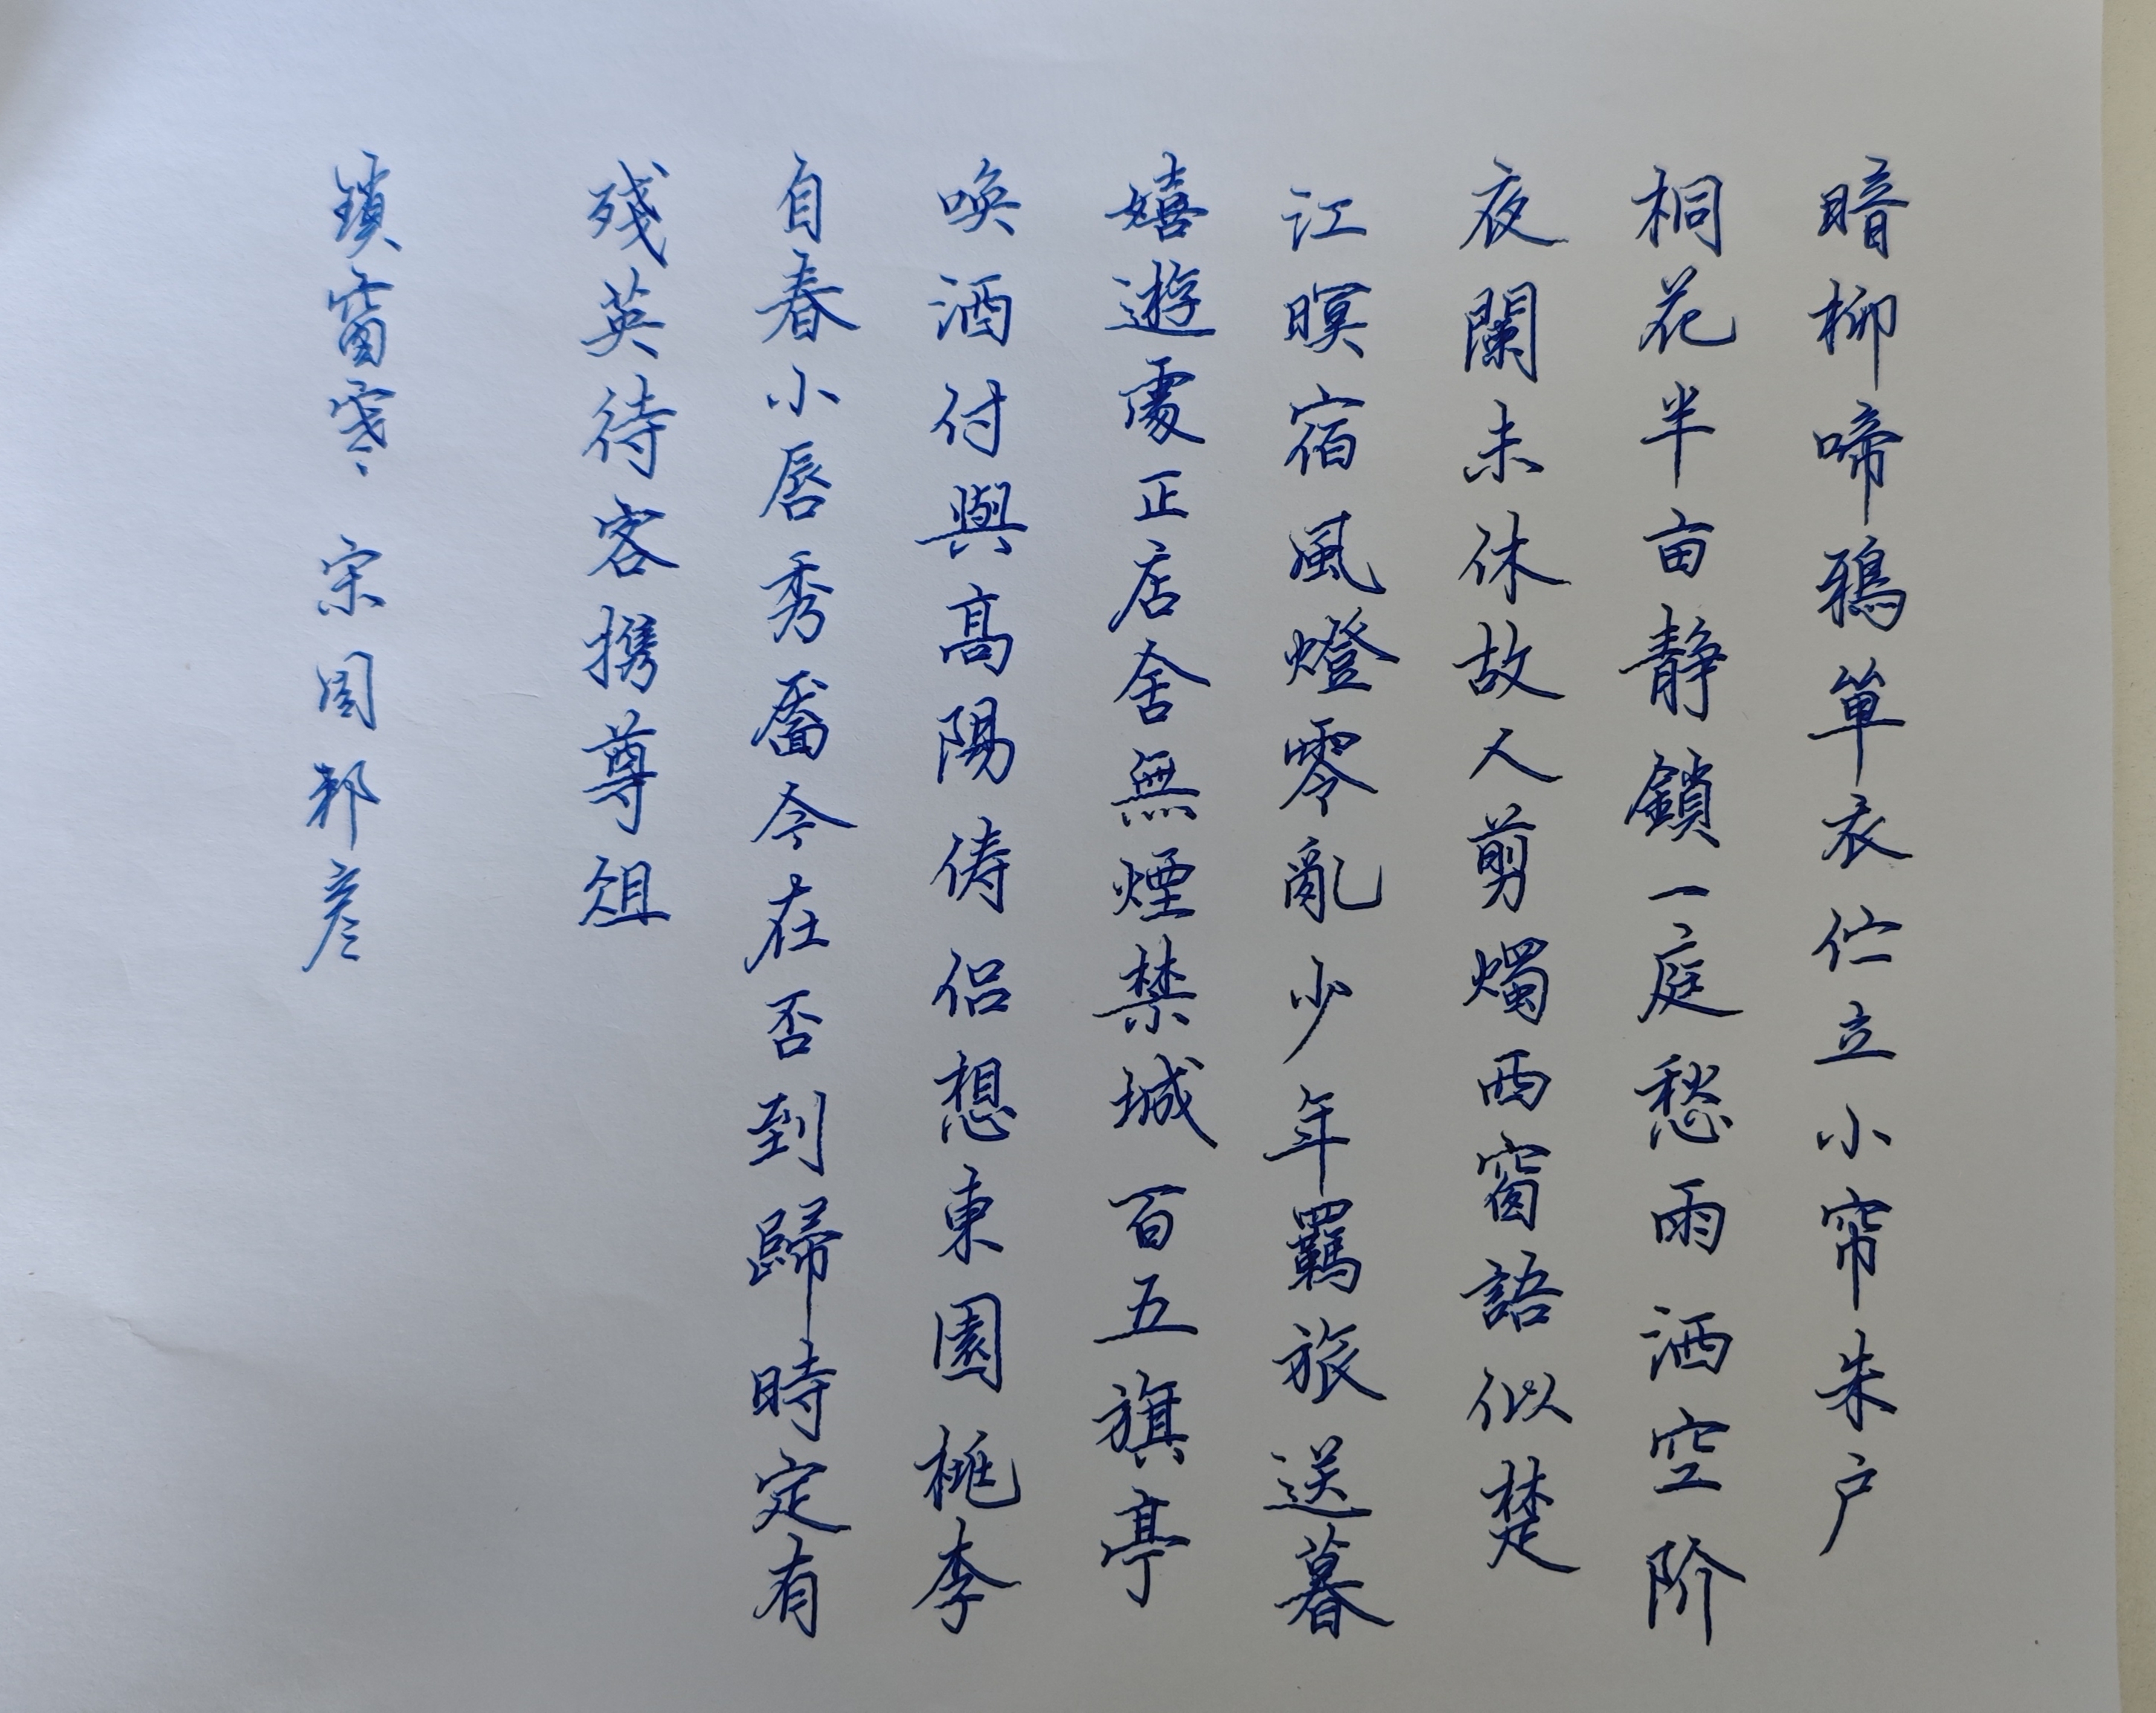 暗柳啼鴉單衣伫立小帘朱户
桐花半亩静鎖一庭愁雨洒空阶
夜闌未休故人剪燭西窗語似楚
江暝宿風燈零亂少年羈旅送暮
嬉遊處正店舍無煙禁城百五旗亭
唤酒付與高陽俦侣想東園桃李
自春小唇秀靥今在否到歸時定有
殘英待客携尊俎
鎖窗寒 宋周邦彦